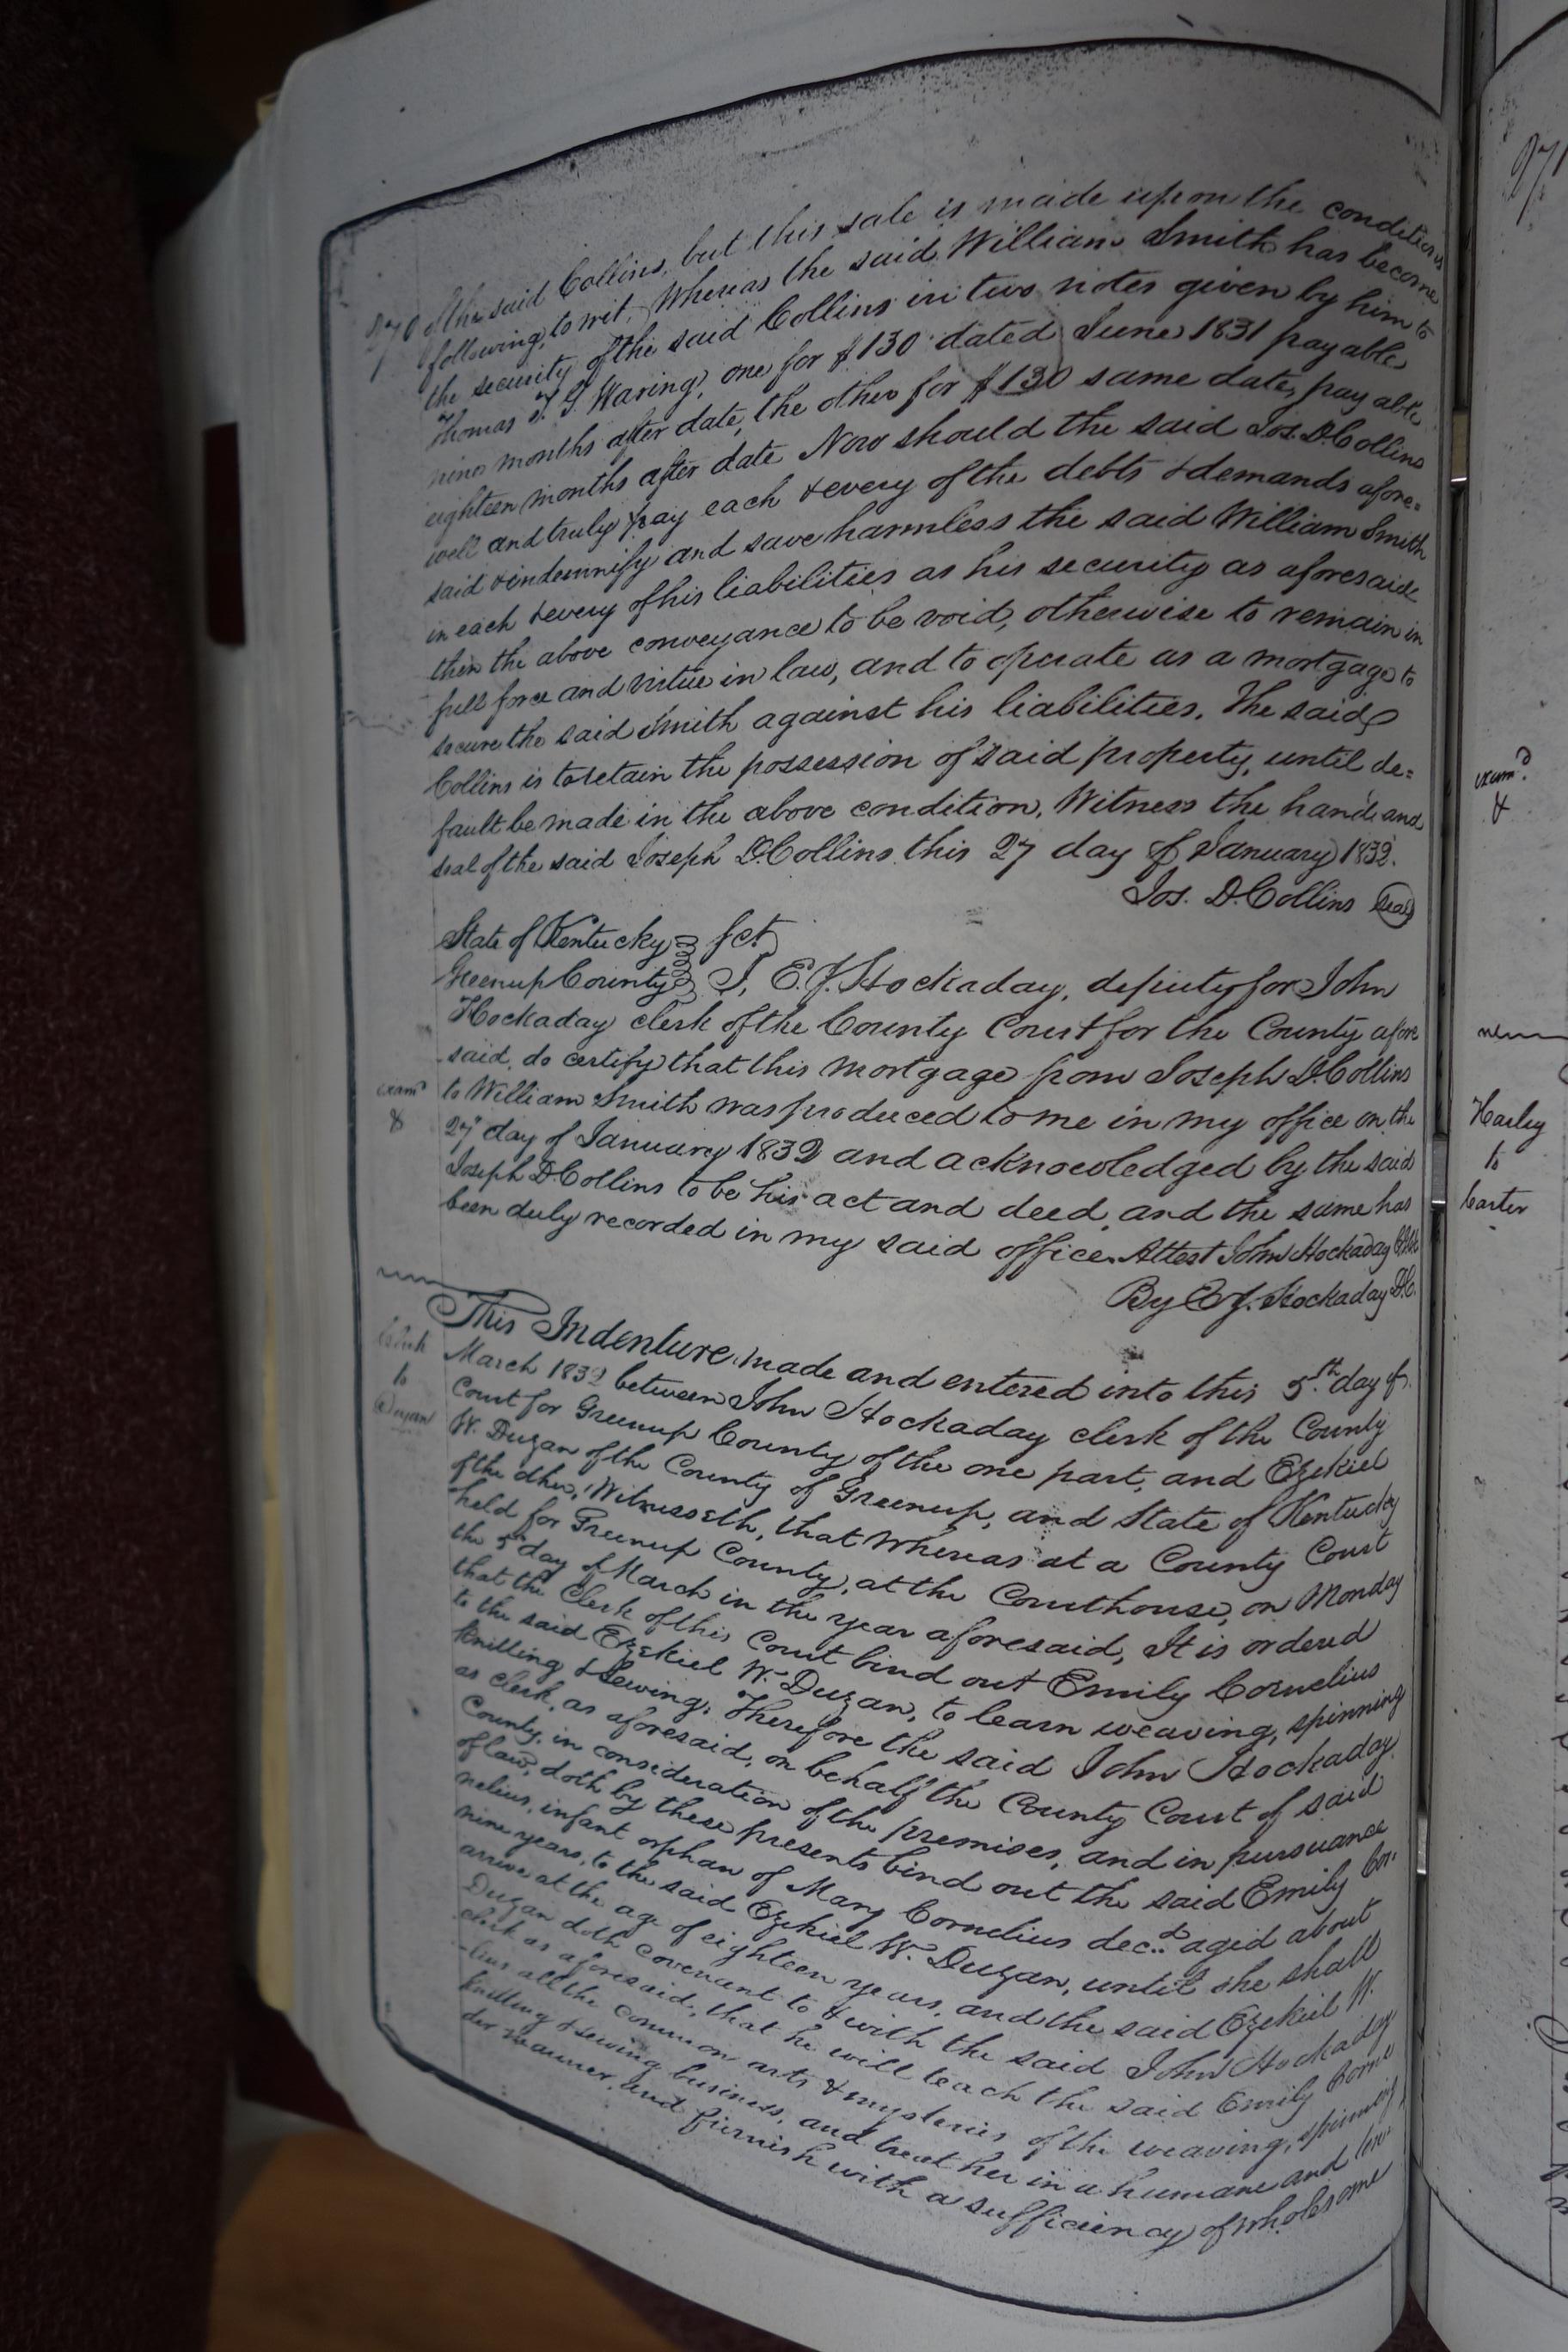 of the said Collins, but this sale is made upon the conditions
following, to wit, Whereas the said William Smith has become
the security of the said Collins in two notes given by him to
Thomas T. G Waring, one for $130 dated June 1831 payable
nine months after date, the other for $130 same date, payable
eighteen months after date Now should the said Jos. D. Collins
well and truly pay each & every of the debts & demands afore=
said & indemnify and save harmless the said William Smith
in each & every of his liabilities as his security as aforesaid
then the above conveyance to be void, otherwise to remain in
full force and virtue in law, and to operate as a mortgage to
secure the said Smith against his liabilities. The said
Collins is to retain the possession of said property, until de=
fault be made in the above condition. Witness the hand and
seal of the said Joseph D. Collins this 27 day of January 1832.
Jos. D. Collins Seal
State of Kentucky fct
Greenup County I, E. J. Hockaday, deputy for John
Hockaday clerk of the County Court for the County afore
said, do certify that this mortgage from Joseph D. Collins
exam^d to William Smith was produced to me in my office on the
& 27 day of January 1832 and acknowledged by the said
Joseph D. Collins to be his act and deed, and the same has
been duly recorded in my said office. Attest John Hockaday Clk
By E. J. Hockaday D.C.
This Indenture made and entered into this 5.th day of
March 1832 between John Hockaday clerk of the County
to Court for Greenup County of the one part, and Ezekiel
W. Duzan of the County of Greenup, and State of Kentucky
of the other, Witnesseth, that Whereas at a County Court
held for Greenup County, at the Courthouse, on Monday
the 5th day of March in the year aforesaid, It is ordered
that the Clerk of this Court bind out Emily Cornelius
to the said Ezekiel W. Duzan, to learn weaving, spinning
knitting & Sewing; Therefore the said John Hockaday
as clerk, as aforesaid, on behalf the County Court of said
County, in consideration of the premises, and in pursuance
of law, doth by these presents bind out the said Emily Cor-
nelius, infant orphan of Mary Cornelius dec.d aged about
nine years, to the said Ezekiel W. Duzan, until she shall
arrive at the age of eighteen years, and the said Ezekiel W.
Duzan doth covenant to & with the said John Hockaday
clerk as aforesaid, that he will teach the said Emily Corne
-lius all the common arts & mysteries of the weaving, spinning,
knitting & sewing business, and treat her in a humane and ten
der manner, and furnish with a sufficiency of wholesome
exam^d
&
Harley
to
Carter